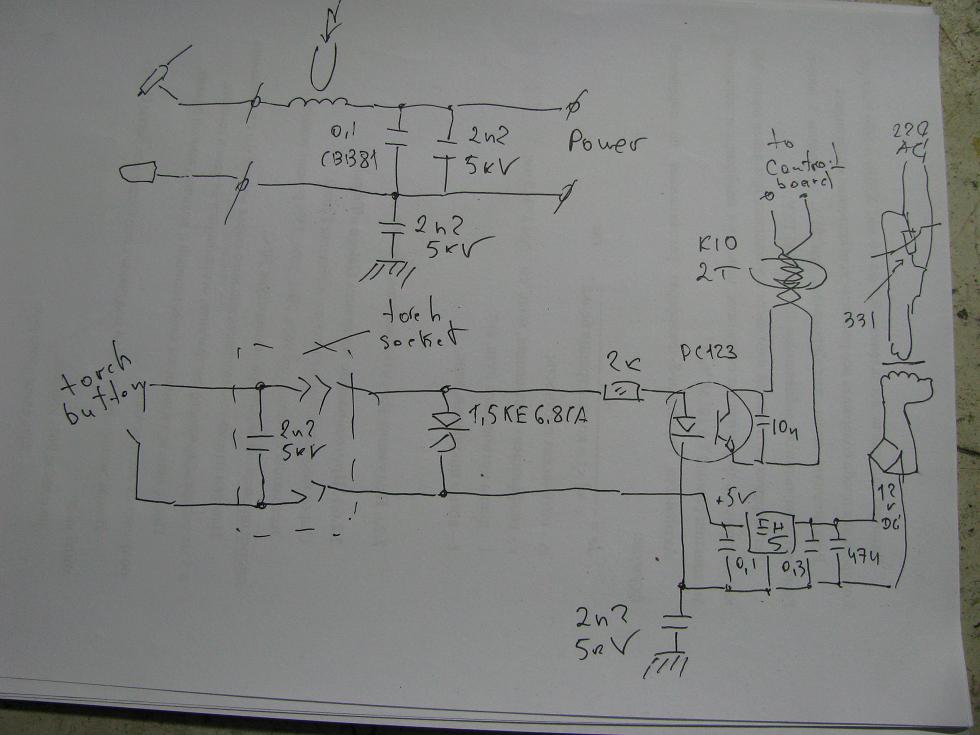 0,1
CBB81
2n2
5kV
Power
2n2
5kV
to
Control
board
220
AC
K10
2T
331
torch
socket
torch
button
2n2
5kV
1,5KE6,8CA
2K
PC123
10n
+5V
0,1
0,3
47u
12
V
DC
2n2
5kV